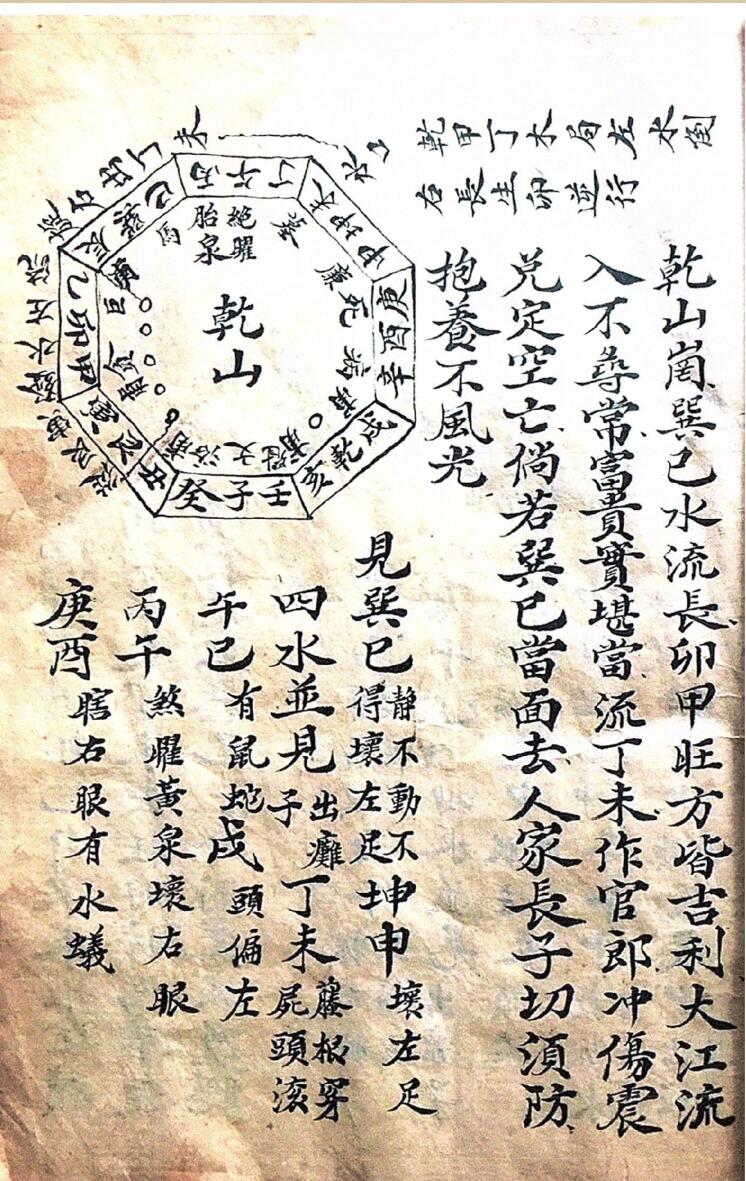 乾甲丁木局左水倒
右長生卯逆行
乾山崗巽巳水流長卯甲旺方皆吉利大江流
入不尋常富貴實堪當流丁未作官郎冲傷震
兌定空亡倘若巽巳當面去人家長子切須防
抱養不風光
丙午丁
未坤申
庚酉辛
戌乾亥
壬子癸
甲卯乙
辰巽巳
絕曜
胎泉
乾山
見巽巳靜不動不得壞左足坤申壞左足
四水並見出癱子丁未藤根穿屍頭滾
午巳有鼠蛇戌頭偏左
丙午煞曜黃泉壞右眼
庚酉瞎右眼有水蟻